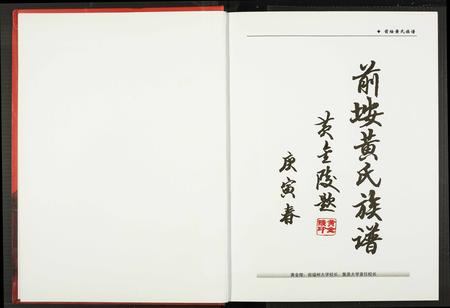 ◆ 前垵黄氏族谱
前垵黄氏族谱
黄金陵题
庚寅春
黄金陵：前福州大学校长、集美大学首任校长